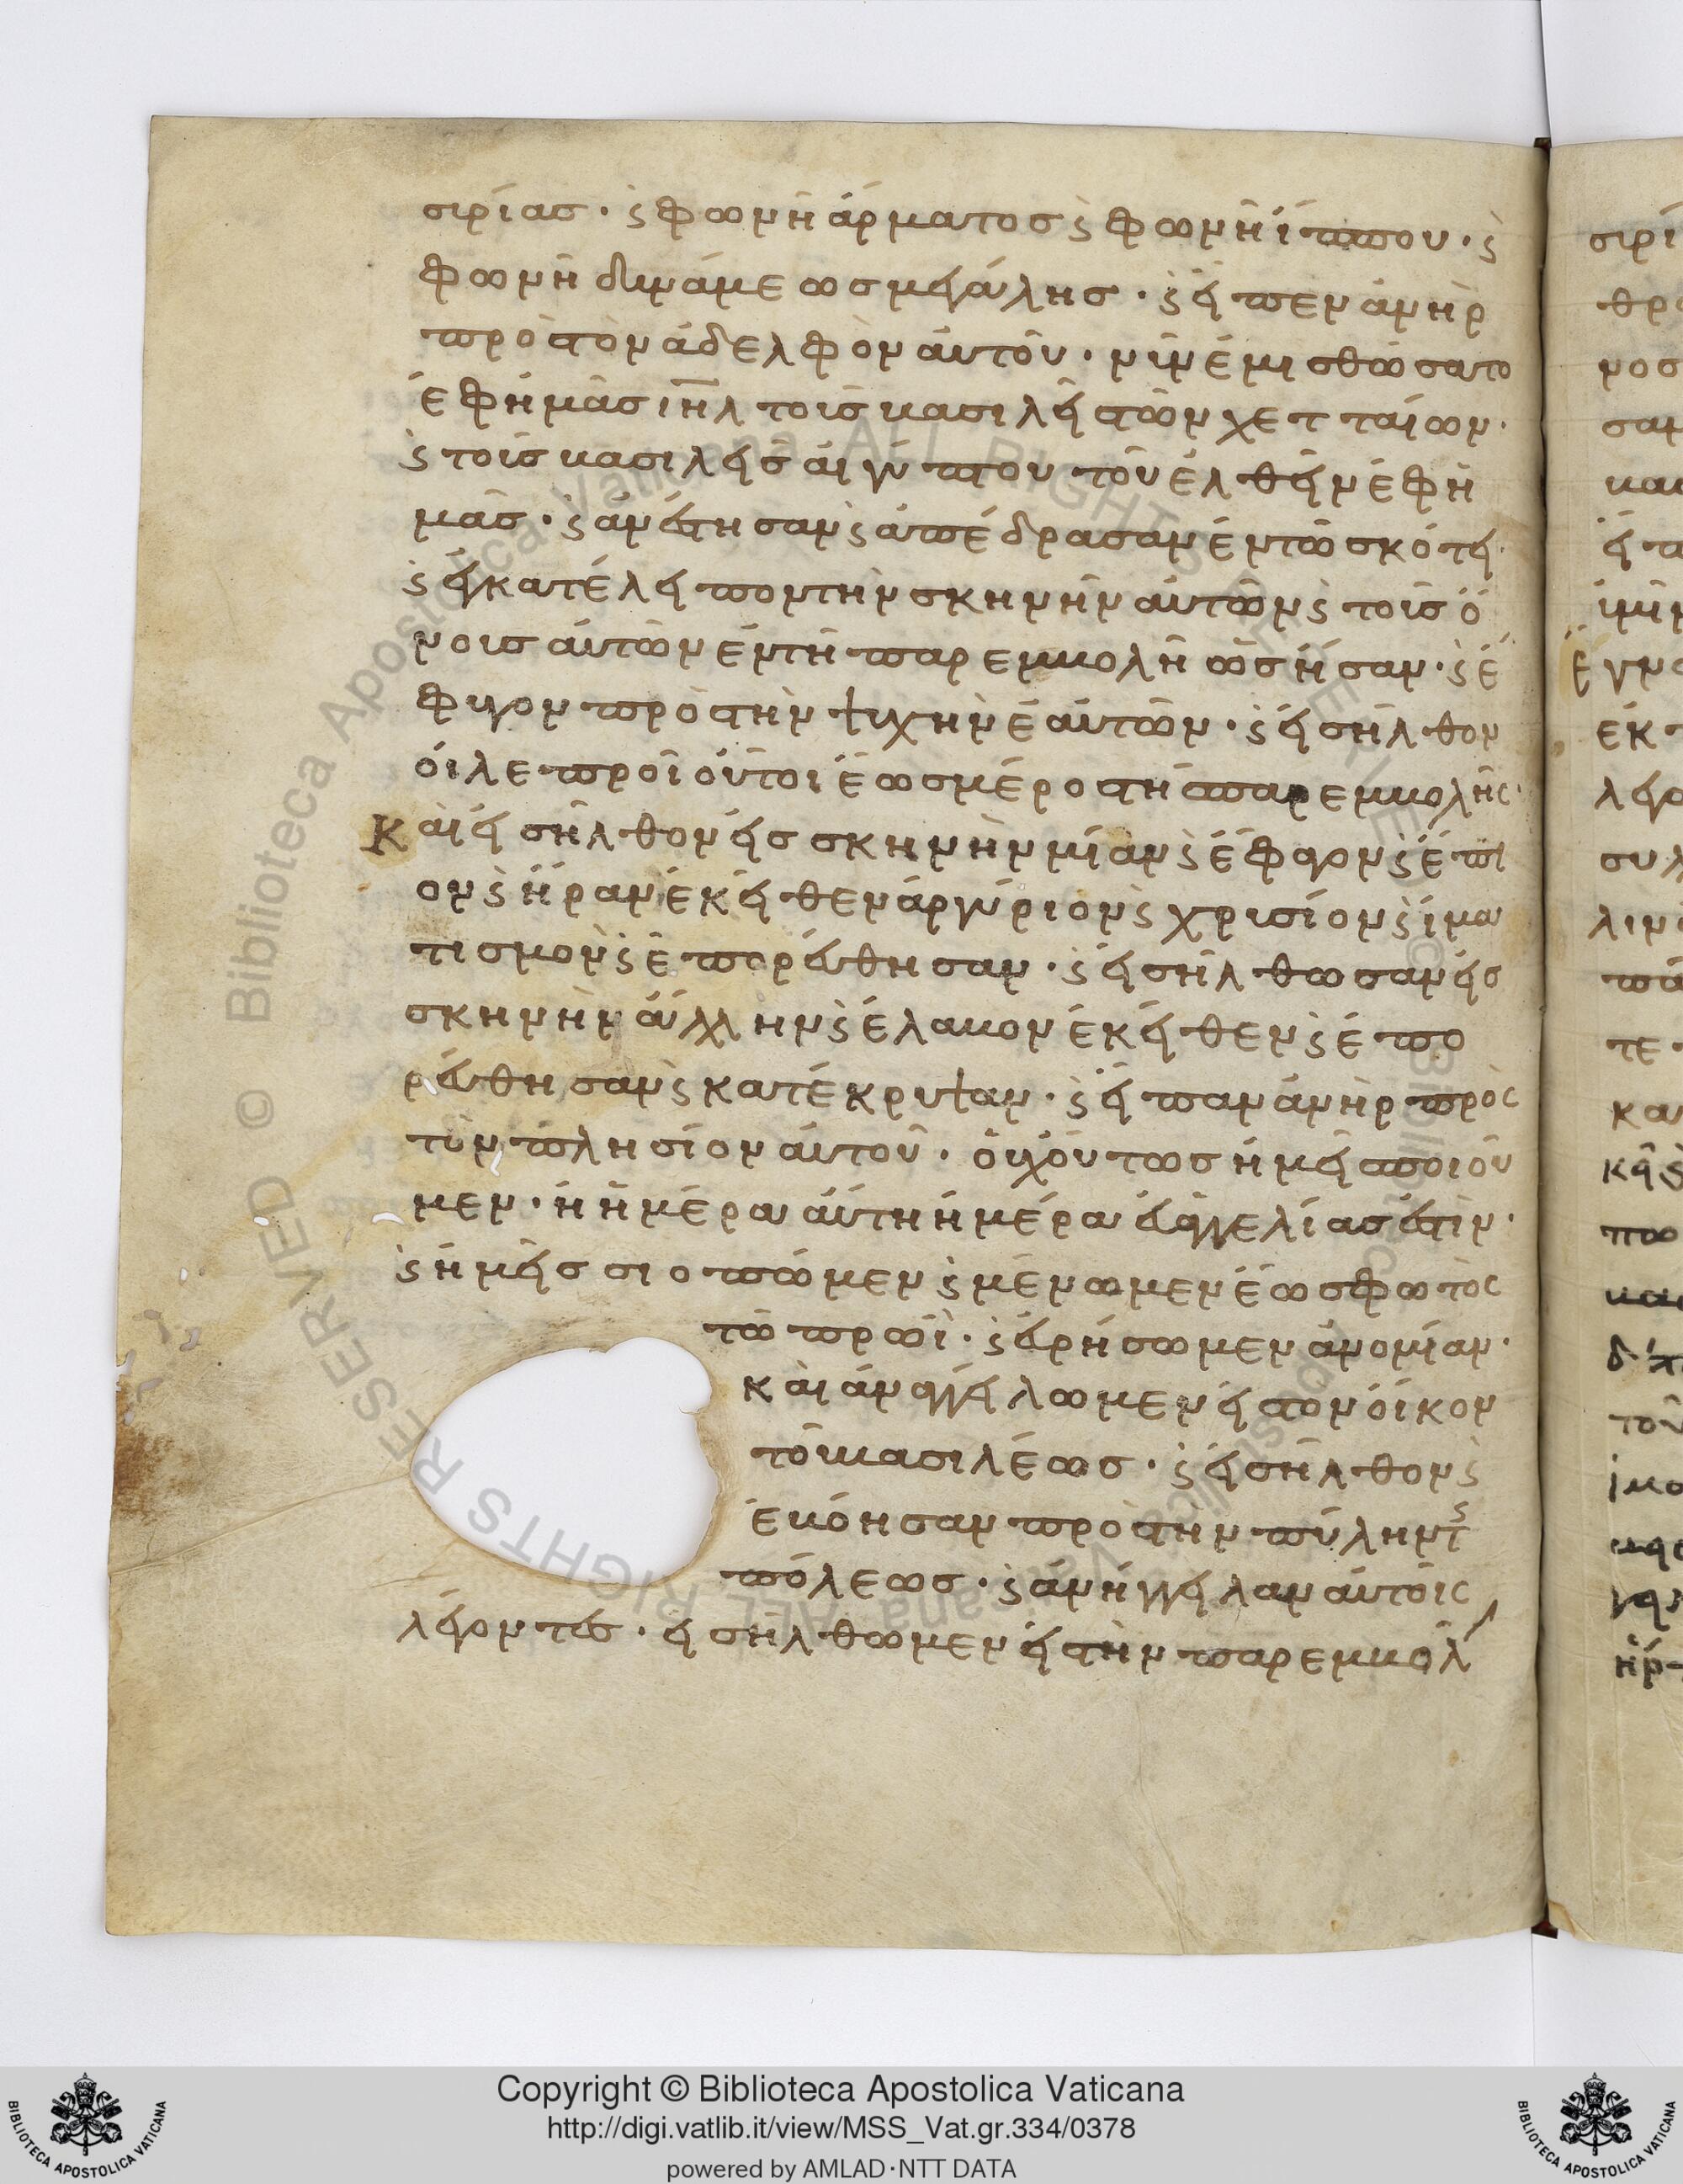 σιρίας · ϛ φωνὴ ἅρματος ϛ φωνὴ ἵππου · ϛ
φωνὴ δυνάμεως μεγάλης · ϛ εἶπεν ἀνὴρ
πρὸς τὸν ἀδελφὸν αὐτοῦ · νῦν ἐμισθώσατο
ἐφ ἡμᾶς ιηλ τοὺς βασιλεῖς τῶν χετταίων ·
ϛ τοὺς βασιλεῖς αἰγύπτου τοῦ ἐλθεῖν ἐφ ἡ
μᾶς · ϛ ἀνέστησαν ϛ ἀπέδρασαν ἐν τῶ σκότει ·
ϛ ἐγκατέλειπον τὴν σκηνὴν αὐτῶν ϛ τοὺς ὄ
νους αὐτῶν ἐν τῆ παρεμβολῆ ὡς ἦσαν · ϛ ἔ
φυγον πρὸς τὴν ψυχὴν ἑαυτῶν · ϛ εἰσῆλθον
οἱ λεπροὶ οὗτοι ἕως μέρους τῆς παρεμβολῆς ·
Καὶ εἰσῆλθον εἰς σκηνὴν μίαν ϛ ἔφαγον ϛ ἔπι
ον ϛ ἦραν ἐκεῖθεν ἀργύριον ϛ χρυσίον ϛ ἱμα
τισμὸν ϛ ἐπορεύθησαν · ϛ εἰσήλθωσαν εἰς
σκηνὴν ἄλλην ϛ ἔλαβον ἐκεῖθεν ϛ ἐπο
ρεύθησαν ϛ κατέκρυψαν · ϛ εἶπαν ἀνὴρ πρὸς
τὸν πλησίον αὐτοῦ · οὐχ οὕτως ἡμεῖς ποιοῦ
μεν · ἡ ἡμέρα αὕτη ἡμέρα εὐαγγελίας ἐστὶν ·
ϛ ἡμεῖς σιοπῶμεν ϛ μένωμεν ἕως φωτὸς
τῶ πρωῒ · ϛ εὑρήσωμεν ἀνομίαν ·
καὶ ἀναγγείλωμεν εἰς τὸν οἶκον
τοῦ βασιλέως · ϛ εἰσῆλθον ϛ
ἐβόησαν πρὸς τὴν πύλην τῆς
πόλεως · ϛ ἀνήγγειλαν αὐτοῖς
λέγοντες · εἰσήλθωμεν εἰς τὴν παρεμβολ
Copyright © Biblioteca Apostolica Vaticana
http://digi.vatlib.it/view/MSS_Vat.gr.334/0378
powered by AMLAD·NTT DATA
BIBLIOTECA APOSTOLICA VATICANA
BIBLIOTECA APOSTOLICA VATICANA